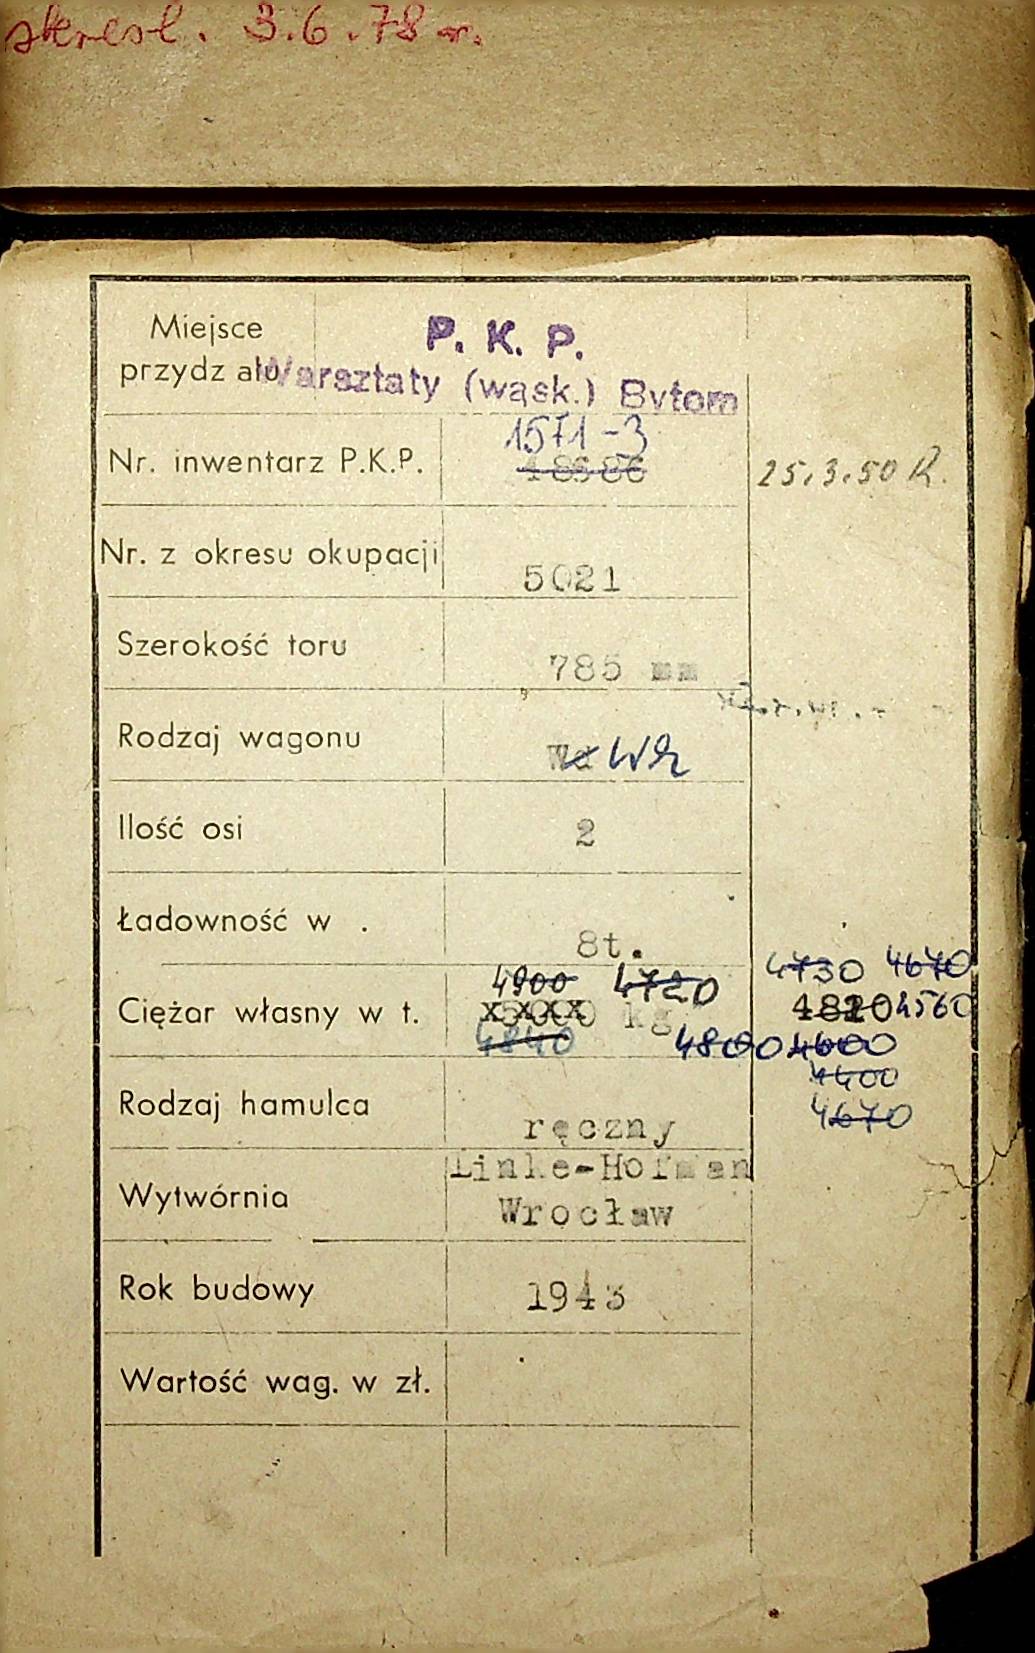 skreśl. 3.6.78 r.
Miejsce P. K. P.
przydz ału Warsztaty (wąsk.) Bytom
1571-3
Nr. inwentarz P.K.P. 48686 25.3.50 R.
Nr. z okresu okupacji 5021
Szerokość toru 785 mm
Rodzaj wagonu Wd
Ilość osi 2
Ładowność w . 8t.
4900 4720 4730 4670
Ciężar własny w t. 5000 kg 4820 4560
4840 4800 4600
4400
Rodzaj hamulca ręczny 4670
Wytwórnia Linke-Hofman
Wrocław
Rok budowy 1943
Wartość wag. w zł.